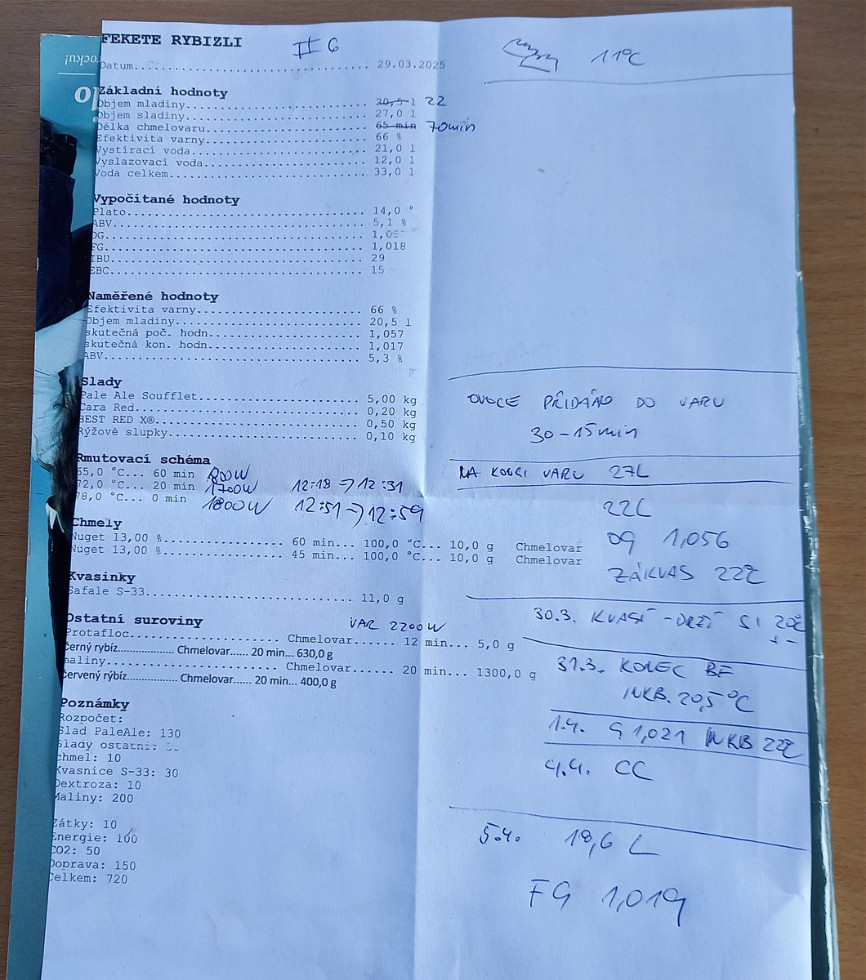 FEKETE RYBIZLI #6
Datum 29.03.2025
11°C
Základní hodnoty
Objem mladiny 20,5 l 22
Objem sladiny 27,0 l
Délka chmelovaru 65 min 70min
Efektivita varny 66 %
Vystírací voda 21,0 l
Vyslazovací voda 12,0 l
Voda celkem 33,0 l
Vypočítané hodnoty
Plato 14,0 °
ABV 5,1 %
OG
FG 1,018
IBU 29
EBC 15
Naměřené hodnoty
Efektivita varny 66 %
Objem mladiny 20,5 l
skutečná poč. hodn. 1,057
skutečná kon. hodn. 1,017
ABV 5,3 %
Slady
Pale Ale Soufflet 5,00 kg
Cara Red 0,20 kg
BEST RED X® 0,50 kg
Rýžové slupky 0,10 kg
OVOCE PŘIDÁNO DO VARU
30-15min
Rmutovací schéma
65,0 °C... 60 min 800W
72,0 °C... 20 min 1700W 12:18 → 12:31
78,0 °C... 0 min 1800W 12:51 → 12:59
NA KONCI VARU 27L
22L
OG 1,056
ZÁKVAS 22°C
Chmely
Nuget 13,00 % 60 min... 100,0 °C... 10,0 g Chmelovar
Nuget 13,00 % 45 min... 100,0 °C... 10,0 g Chmelovar
Kvasinky
Safale S-33 11,0 g
Ostatní suroviny VAR 2200W
Protafloc Chmelovar...... 12 min... 5,0 g
černý rybíz Chmelovar...... 20 min... 630,0 g
maliny Chmelovar...... 20 min... 1300,0 g
červený rybíz Chmelovar...... 20 min... 400,0 g
30.3. KVASÍ - DRŽÍ SI 20°C
+-
31.3. KONEC BF
INKB. 20,5°C
1.4. G 1,021 INKB 22°C
4.4. CC
5.4. 18,6 L
FG 1,019
Poznámky
Rozpočet:
Slad PaleAle: 130
Slady ostatní:
chmel: 10
Kvasnice S-33: 30
Dextroza: 10
Maliny: 200
Zátky: 10
Energie: 100
CO2: 50
Doprava: 150
Celkem: 720